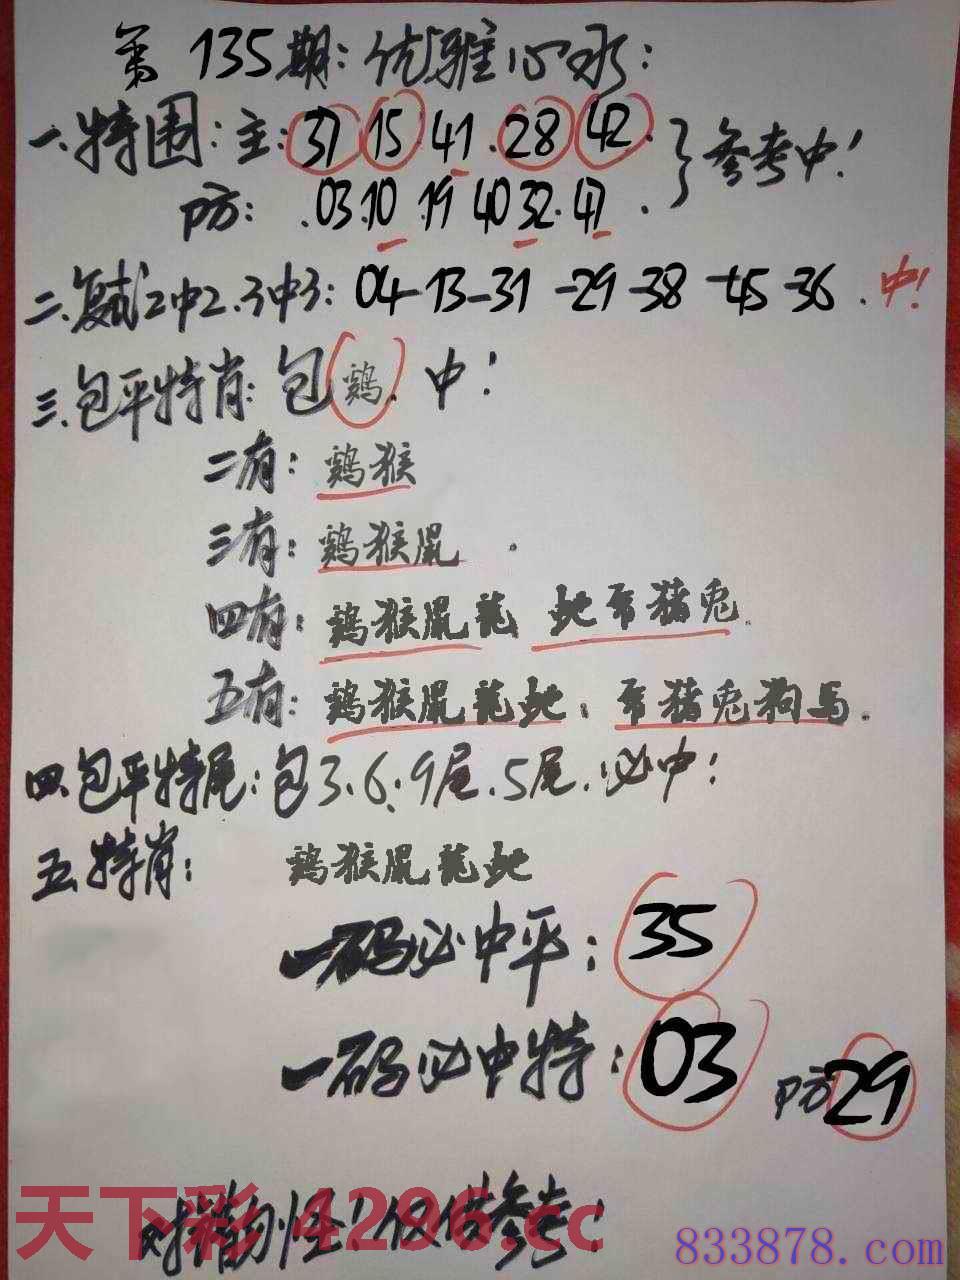 第135期:优雅心水:
一.特围:主:37 15 41.28 42.}参考中!
防:.03.10.19 40 32.47.
二.复式2中2.3中3:04-13-31-29-38-45-36.中!
三.包平特肖:包鸡.中!
二有:鸡猴
三有:鸡猴鼠.
四有:鸡猴鼠龍 蛇羊猪兎.
五有:鸡猴鼠龍蛇:羊猪兎狗马.
四.包平特尾:包3.6.9尾.5尾.必中!
五.特肖:鸡猴鼠龍蛇
一码必中平:35
一码必中特:03 防29
对错勿怪!仅供参考!
天下彩 4296.cc
833878.com